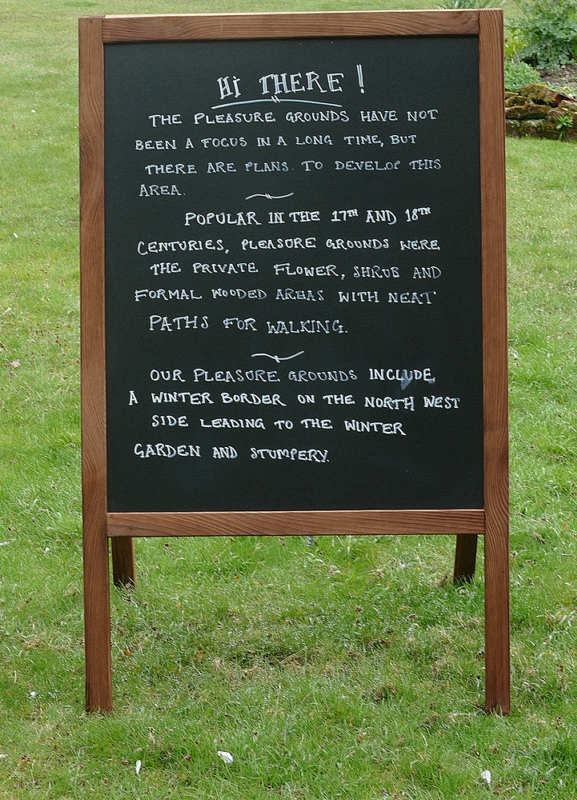 Hi THERE!
THE PLEASURE GROUNDS HAVE NOT
BEEN A FOCUS IN A LONG TIME, BUT
THERE ARE PLANS TO DEVELOP THIS
AREA.
POPULAR IN THE 17TH AND 18TH
CENTURIES, PLEASURE GROUNDS WERE
THE PRIVATE FLOWER, SHRUB AND
FORMAL WOODED AREAS WITH NEAT
PATHS FOR WALKING.
OUR PLEASURE GROUNDS INCLUDE
A WINTER BORDER ON THE NORTH WEST
SIDE LEADING TO THE WINTER
GARDEN AND STUMPERY.